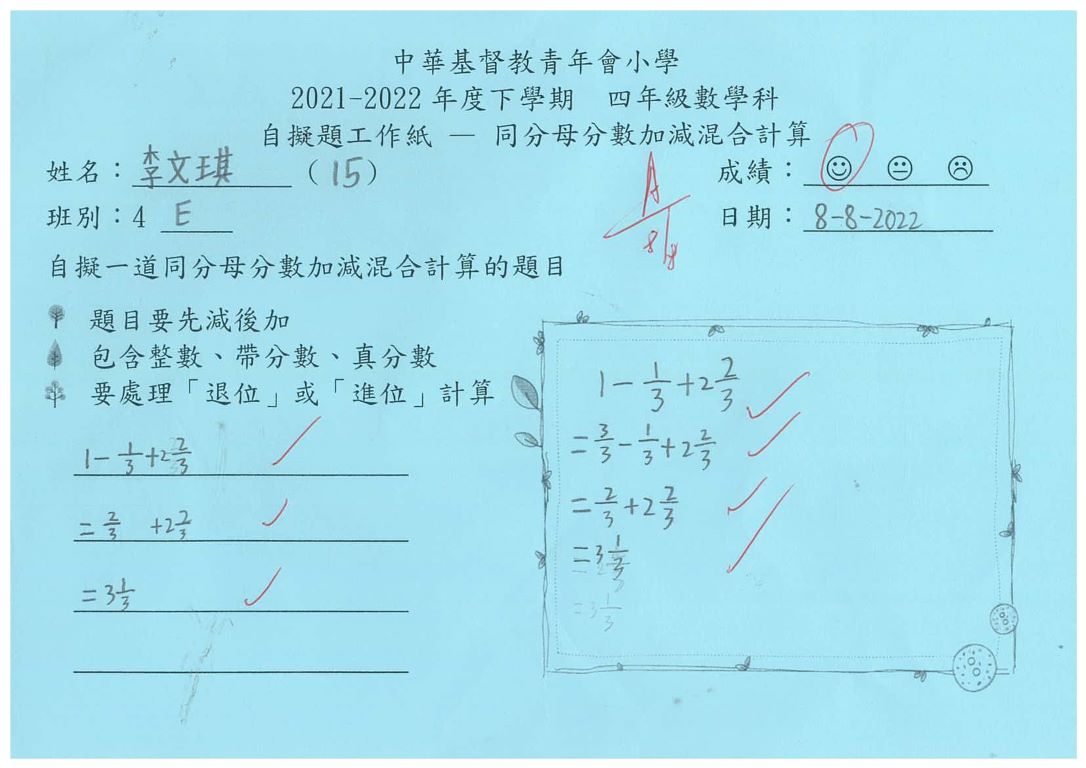 中華基督教青年會小學
2021-2022 年度下學期 四年級數學科
自擬題工作紙 — 同分母分數加減混合計算
姓名：李文琪 (15) 成績：
班別：4 E 日期：8-8-2022
A
8/8
自擬一道同分母分數加減混合計算的題目
題目要先減後加
包含整數、帶分數、真分數
要處理「退位」或「進位」計算
1 - 1/3 + 2 2/3
= 2/3 + 2 2/3
= 3 1/3
1 - 1/3 + 2 2/3
= 3/3 - 1/3 + 2 2/3
= 2/3 + 2 2/3
= 3 1/3
= 3 1/3